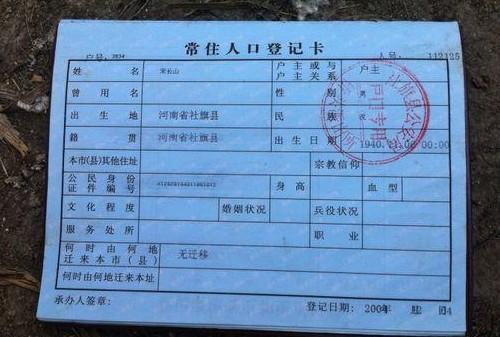 常住人口登记卡
户号: 2834 人号: 112125
姓名 宋长山 户主或与户主关系 户主
曾用名 性别 男
出生地 河南省社旗县 民族 汉
籍贯 河南省社旗县 出生日期 1940.11.06 00:00
本市(县)其他住址 宗教信仰
公民身份证件编号 身高 血型
文化程度 婚姻状况 兵役状况
服务处所 职业
何时由何地迁来本市(县) 无迁移
何时由何地迁来本址
承办人签章: 登记日期: